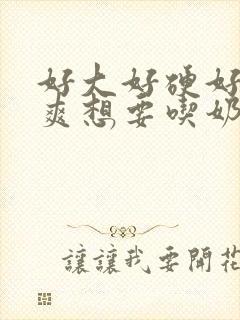 好大好硬好
爽想要喫奶
讓讓我要開花